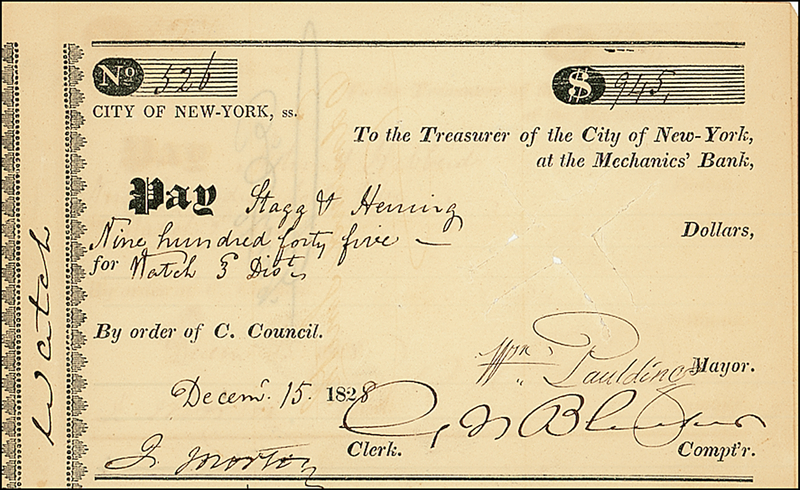 No 526
$ 945,
CITY OF NEW-YORK, ss.
To the Treasurer of the City of New-York,
at the Mechanics' Bank,
Pay Stagg & Heming
Nine hundred forty five — Dollars,
for Watch 3 Dist
By order of C. Council.
Wm Paulding Mayor.
Decemr. 15. 1828
J. Morton Clerk.
Compt'r.
Watch